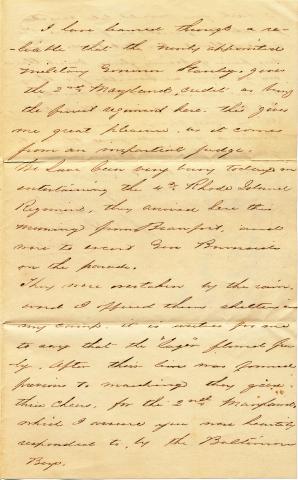 I have learned through a re-
liable that the newly appointed
Military Governor Stanley, gives
the 2nd Maryland, credit as being
the finest regiment here. this gives
me great pleasure. as it comes
from an impartial judge.
We have been very busy today in
entertaining the 4th Rhode Island
Regiment, they arrived here this
morning from Beaufort, and
were to escort Gen Burnside
on the parade.
They were overtaken by the rain,
and I offered them shelter in
my camp. it is useless for me
to say that the "Lager" flowed free
ly. After their line was formed
previous to marching they gave
three cheers, for the 2nd Maryland
which I assure you were heartily
responded to, by the Baltimore
Boys.